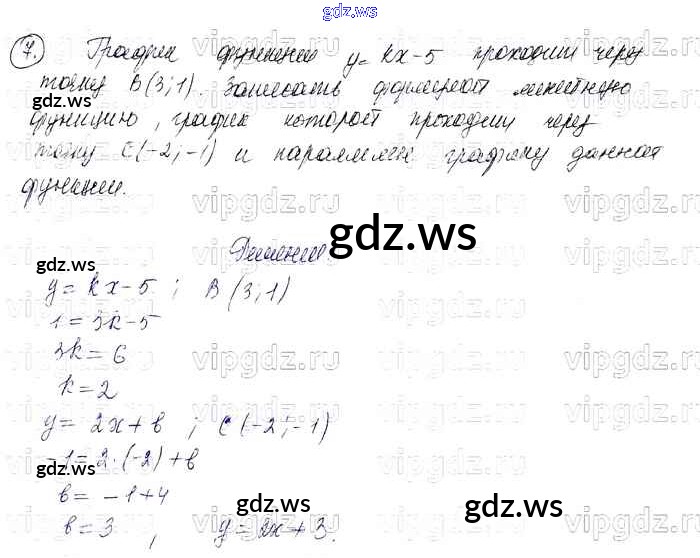 gdz.ws
7. График функции y = kx-5 проходит через
точку B(3;1). Записать формулой линейную
функцию, график которой проходит через
точку C(-2;-1) и параллелен графику данной
функции.
Решение
gdz.ws
y = kx-5 ; B (3;1)
1 = 3k-5
3k = 6
k = 2
y = 2x+b ; C (-2;-1)
-1 = 2·(-2)+b
b = -1+4
b = 3 , y = 2x+3.
gdz.ws
gdz.ws
gdz.ws
gdz.ws
gdz.ws
gdz.ws
vipgdz.ru